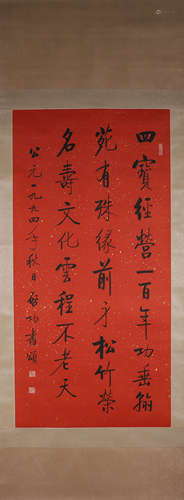 四寶經營一百年功垂翰
苑有珠緣前身松竹榮
名壽文化雲程不老天
公元一九九四年秋日啟功書頌